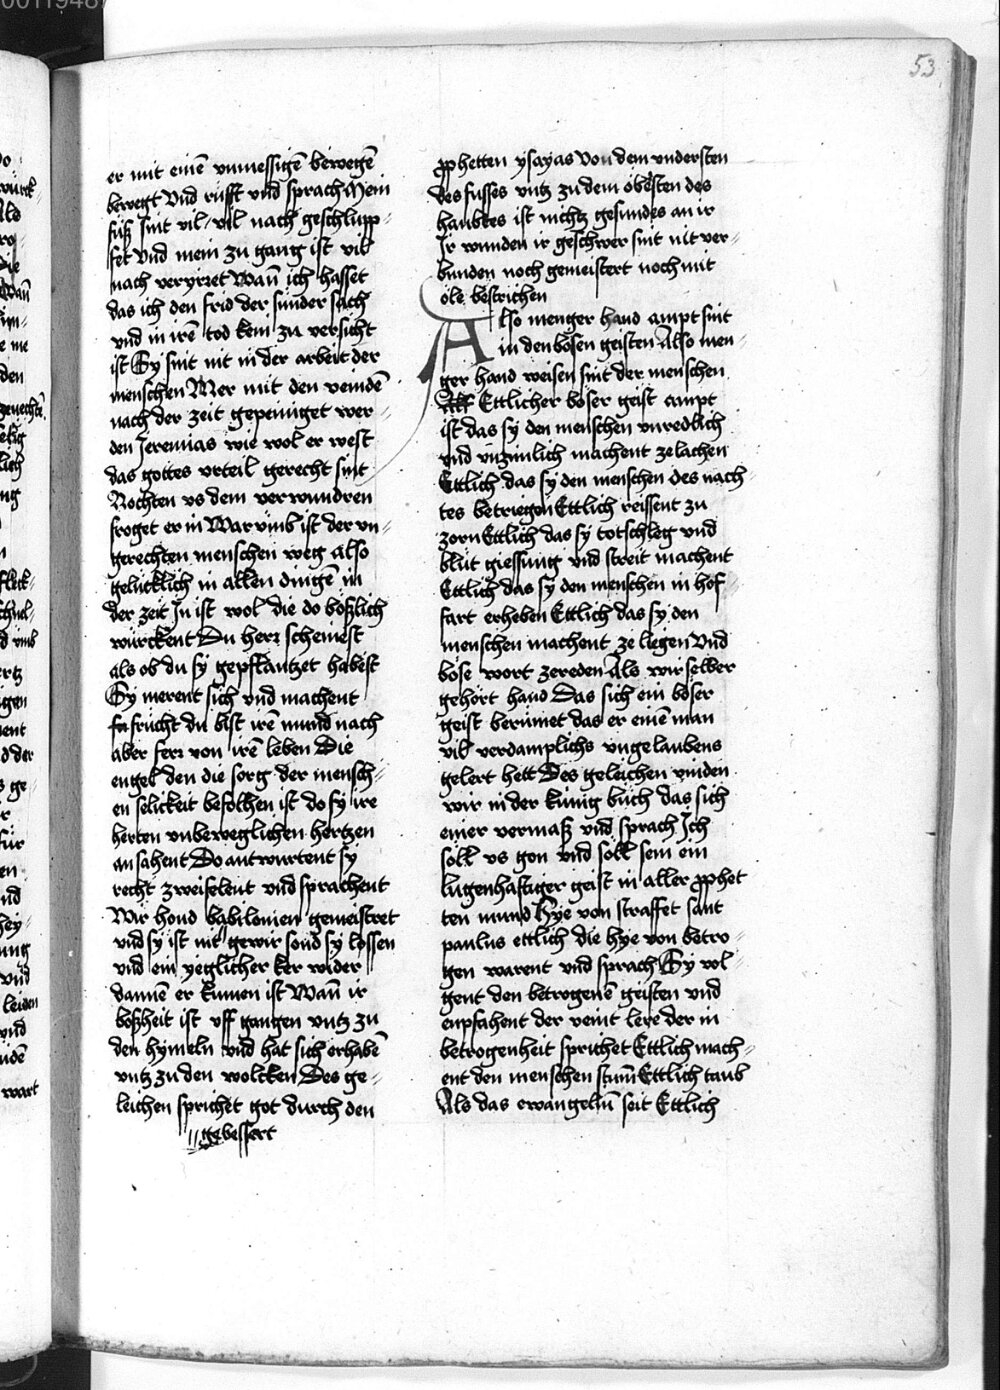 53
er mit einē vnmessigē bewegē
bewegt Vnd rüfft vnd sprach Mein
füß sint vil vil nach geschlupp-
fet vnd mein zu gang ist vil
nach veryrret Wañ ich hasset
das ich den frid der sunder sach
vnd in irē tod kein zu versicht
ist Sy sint nit in der arbeit der
menschen Mer mit den veindē
nach der zeit gepeiniget wer-
den Jeremias wie wol er west
das gottes vrteil gerecht sint
Nochten vs dem verwundren
froget er in War vmb ist der vn-
gerechten menschen weg also
gelücklich in allen dingē in
der zeit Jn ist wol die do boßlich
würckent Du herr scheinest
als ob du sy gepflantzet habest
Sy merent sich vnd machent
frücht du bist irē mund nach
aber ferr von irē leben Die
engel den die sorg der mensch-
en selickeit befolhen ist do sy ire
herten vnbeweglichen hertzen
an sahent Do antwurtent sy
recht zweifelent vnd sprachent
Wir hond babilonien gemeistret
vnd sy ist nit gewir sond sy lossen
vnd ein yeglicher ker wider
dannē er kumen ist Wañ ir
boßheit ist vff gangen vntz zu
den hymeln vnd hat sich erhabē
vntz zu den wolcken Des ge-
leichen sprichet got durch den
gebessert
prophetten ysayas Von dem vndersten
des fusses vntz zu dem öbosten des
haubtes ist nichtz gesundes an ir
Jr wunden ir geschwer sint nit ver-
bunden noch gemeistert noch mit
öle bestrichen
Also menger hand ampt sint
in den bosen geisten Also men-
ger hand weisen sint der menschen
Ettlicher boser geist ampt
ist das sy den menschen vnredlich
vnd vnzimlich machent ze lachen
Ettlich das sy den menschen des nach
tes betriegen Ettlich reissent zu
zorn Ettlich das sy totschleg vnd
blüt giessung vnd streit machent
Ettlich das sy den menschen in hof
fart erheben Ettlich das sy den
menschen machent ze liegen Vnd
böse wort zereden Als wir selber
gehört hand Das sich ein böser
geist berümet das er einē man
vil verdamplichs vngelaubens
gelert hett Des geleichen vinden
wir in der künig büch das sich
einer vermaß vnd sprach Jch
söll vs gon vnd söll sein ein
lugenhaftiger geist in aller prophet
ten mund Hye von straffet sant
paulus ettlich die hye von betro-
gen warent vnd sprach Sy vol-
gent den betrogenē geisten vnd
enpfahent der veint lere der in
betrogenheit sprichet Ettlich mach-
ent den menschen stum̄ Ettlich taub
Als das ewangeliū seit Ettlich